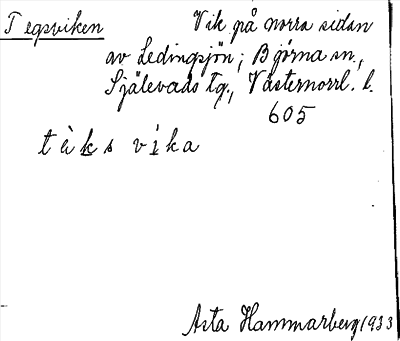 Tegsviken Vik på norra sidan
av Ledingsjön; Björna sn,
Själevads tg., Västernorrl. l.
605
tèks vika
Asta Hammarberg 1933